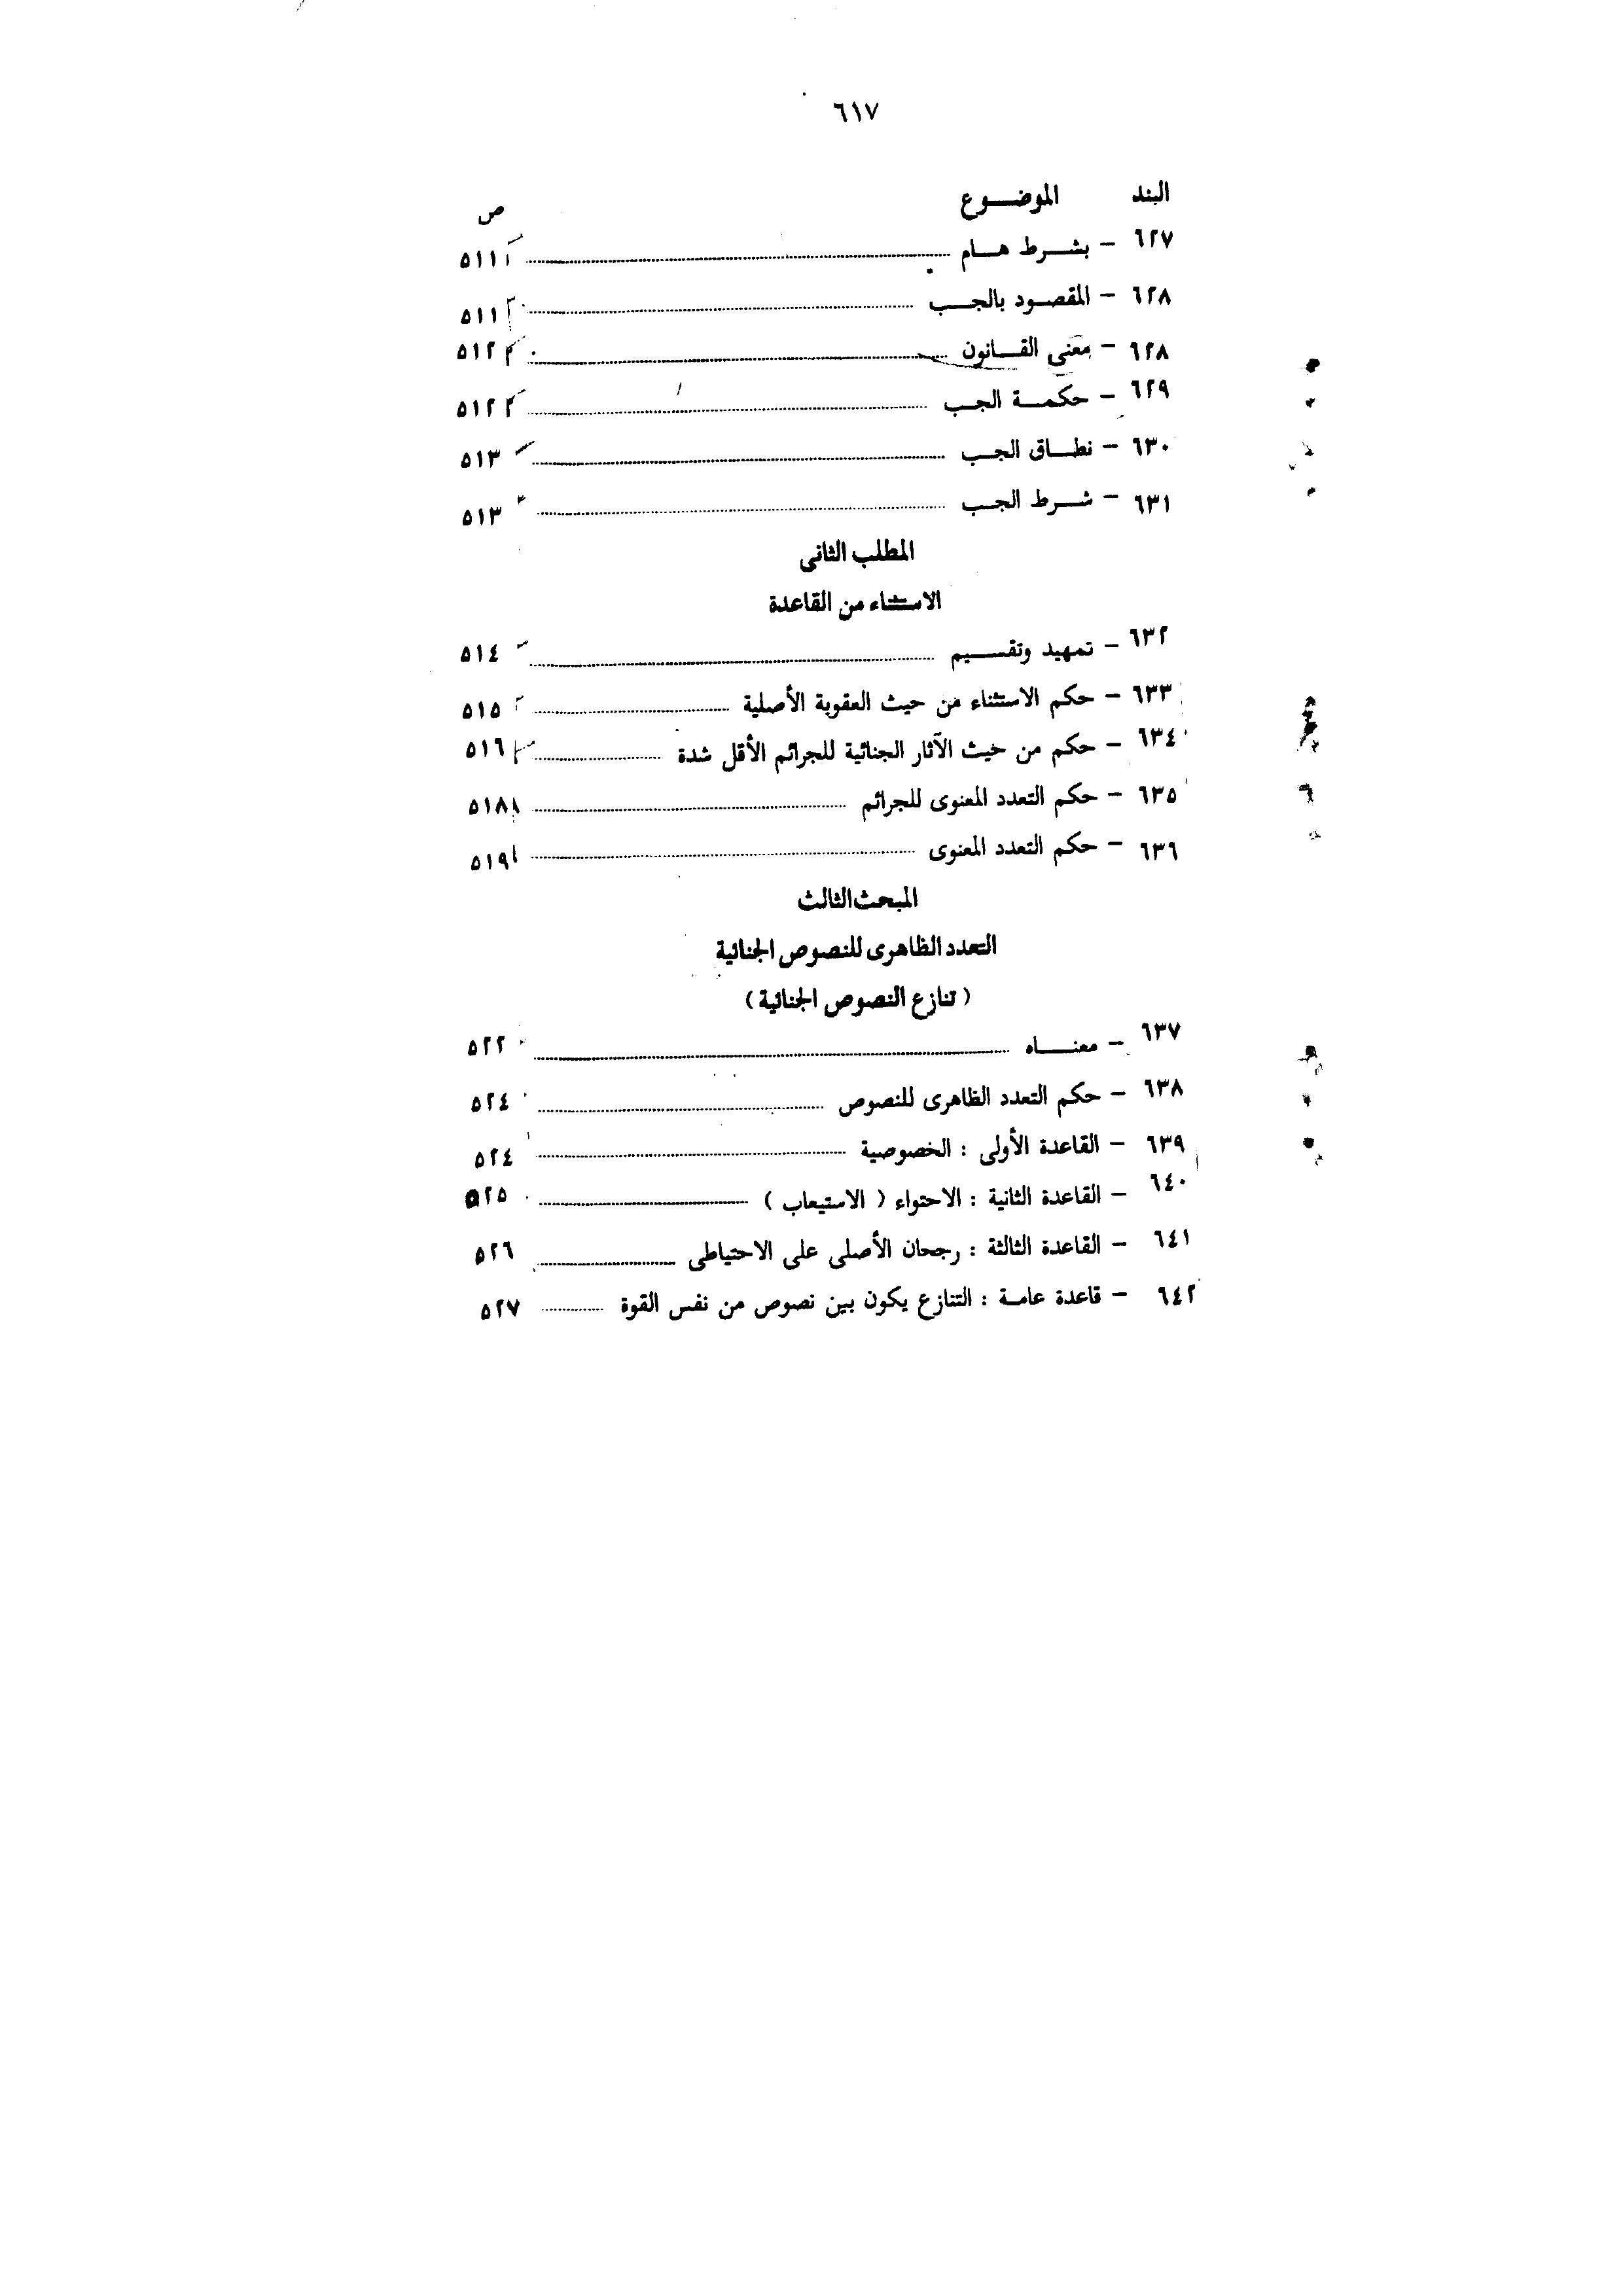 ٦١٧
البند الموضوع ص
٦٢٧ - بشرط هام ٥١١
٦٢٨ - المقصود بالجب ٥١١
٦٢٨ - معنى القانون ٥١٢
٦٢٩ - حكمة الجب ٥١٢
٦٣٠ - نطاق الجب ٥١٣
٦٣١ - شرط الجب ٥١٣
المطلب الثانى
الاستثناء من القاعدة
٦٣٢ - تمهيد وتقسيم ٥١٤
٦٣٣ - حكم الاستثناء من حيث العقوبة الأصلية ٥١٥
٦٣٤ - حكم من حيث الآثار الجنائية للجرائم الأقل شدة ٥١٦
٦٣٥ - حكم التعدد المعنوى للجرائم ٥١٨
٦٣٦ - حكم التعدد المعنوى ٥١٩
المبحث الثالث
التعدد الظاهرى للنصوص الجنائية
( تنازع النصوص الجنائية )
٦٣٧ - معناه ٥٢٢
٦٣٨ - حكم التعدد الظاهرى للنصوص ٥٢٤
٦٣٩ - القاعدة الأولى : الخصوصية ٥٢٤
٦٤٠ - القاعدة الثانية : الاحتواء ( الاستيعاب ) ٥٢٥
٦٤١ - القاعدة الثالثة : رجحان الأصلى على الاحتياطى ٥٢٦
٦٤٢ - قاعدة عامة : التنازع يكون بين نصوص من نفس القوة ٥٢٧